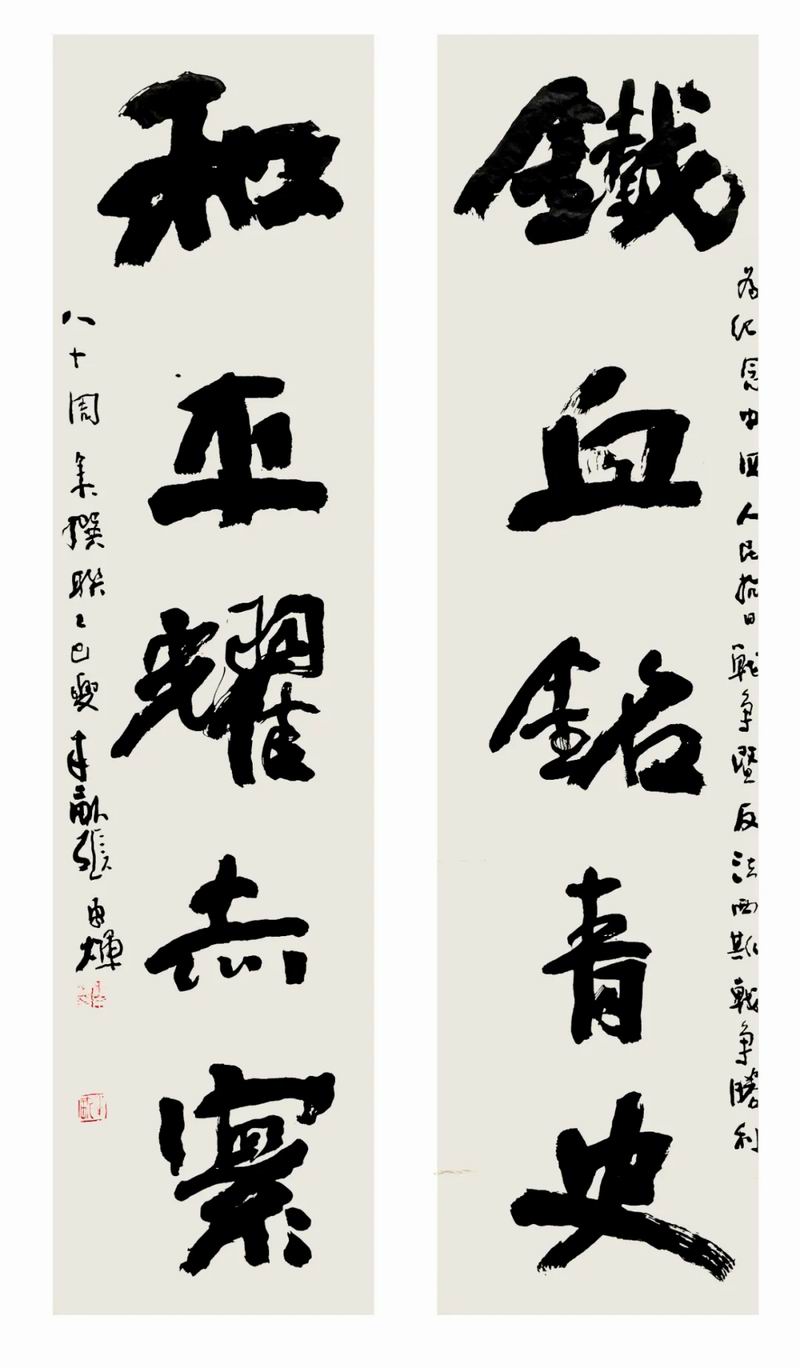 鐵血銘青史
為紀念中國人民抗日戰爭暨反法西斯戰爭勝利
和平耀赤寰
八十周年撰聯乙巳夏張輝